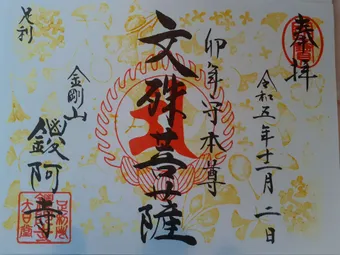 奉拝
令和五年十二月二日
卯年守本尊
文殊菩薩
足利
金剛山
鑁阿寺